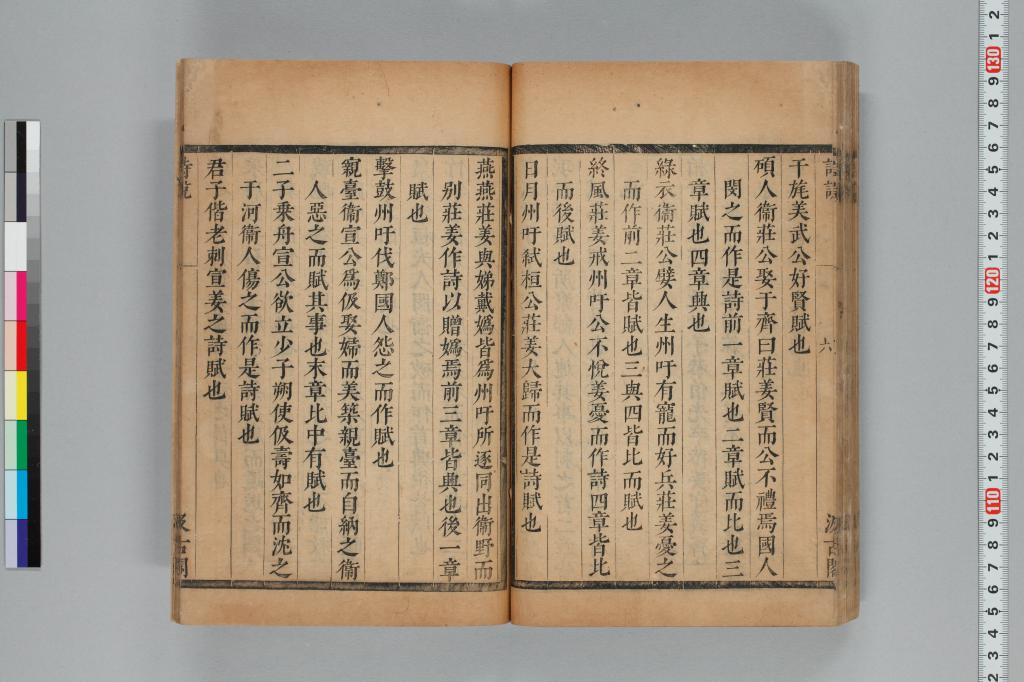 詩說
六
汲古閣
干旄美武公好賢賦也
碩人衞莊公娶于齊曰莊姜賢而公不禮焉國人
閔之而作是詩前一章賦也二章賦而比也三
章賦也四章典也
綠衣衞莊公嬖人生州吁有寵而好兵莊姜憂之
而作前二章皆賦也三與四皆比而賦也
終風莊姜戒州吁公不悅姜憂而作詩四章皆比
而後賦也
日月州吁弑桓公莊姜大歸而作是詩賦也
燕燕莊姜與娣戴嬀皆爲州吁所逐同出衞野而
别莊姜作詩以贈嬀焉前三章皆典也後一章
賦也
擊鼓州吁伐鄭國人怨之而作賦也
寴臺衞宣公爲伋娶婦而美築寴臺而自納之衞
人惡之而賦其事也末章比中有賦也
二子乗舟宣公欲立少子朔使伋壽如齊而沈之
于河衞人傷之而作是詩賦也
君子偕老刺宣姜之詩賦也
詩說
汲古閣
12
130
120
110